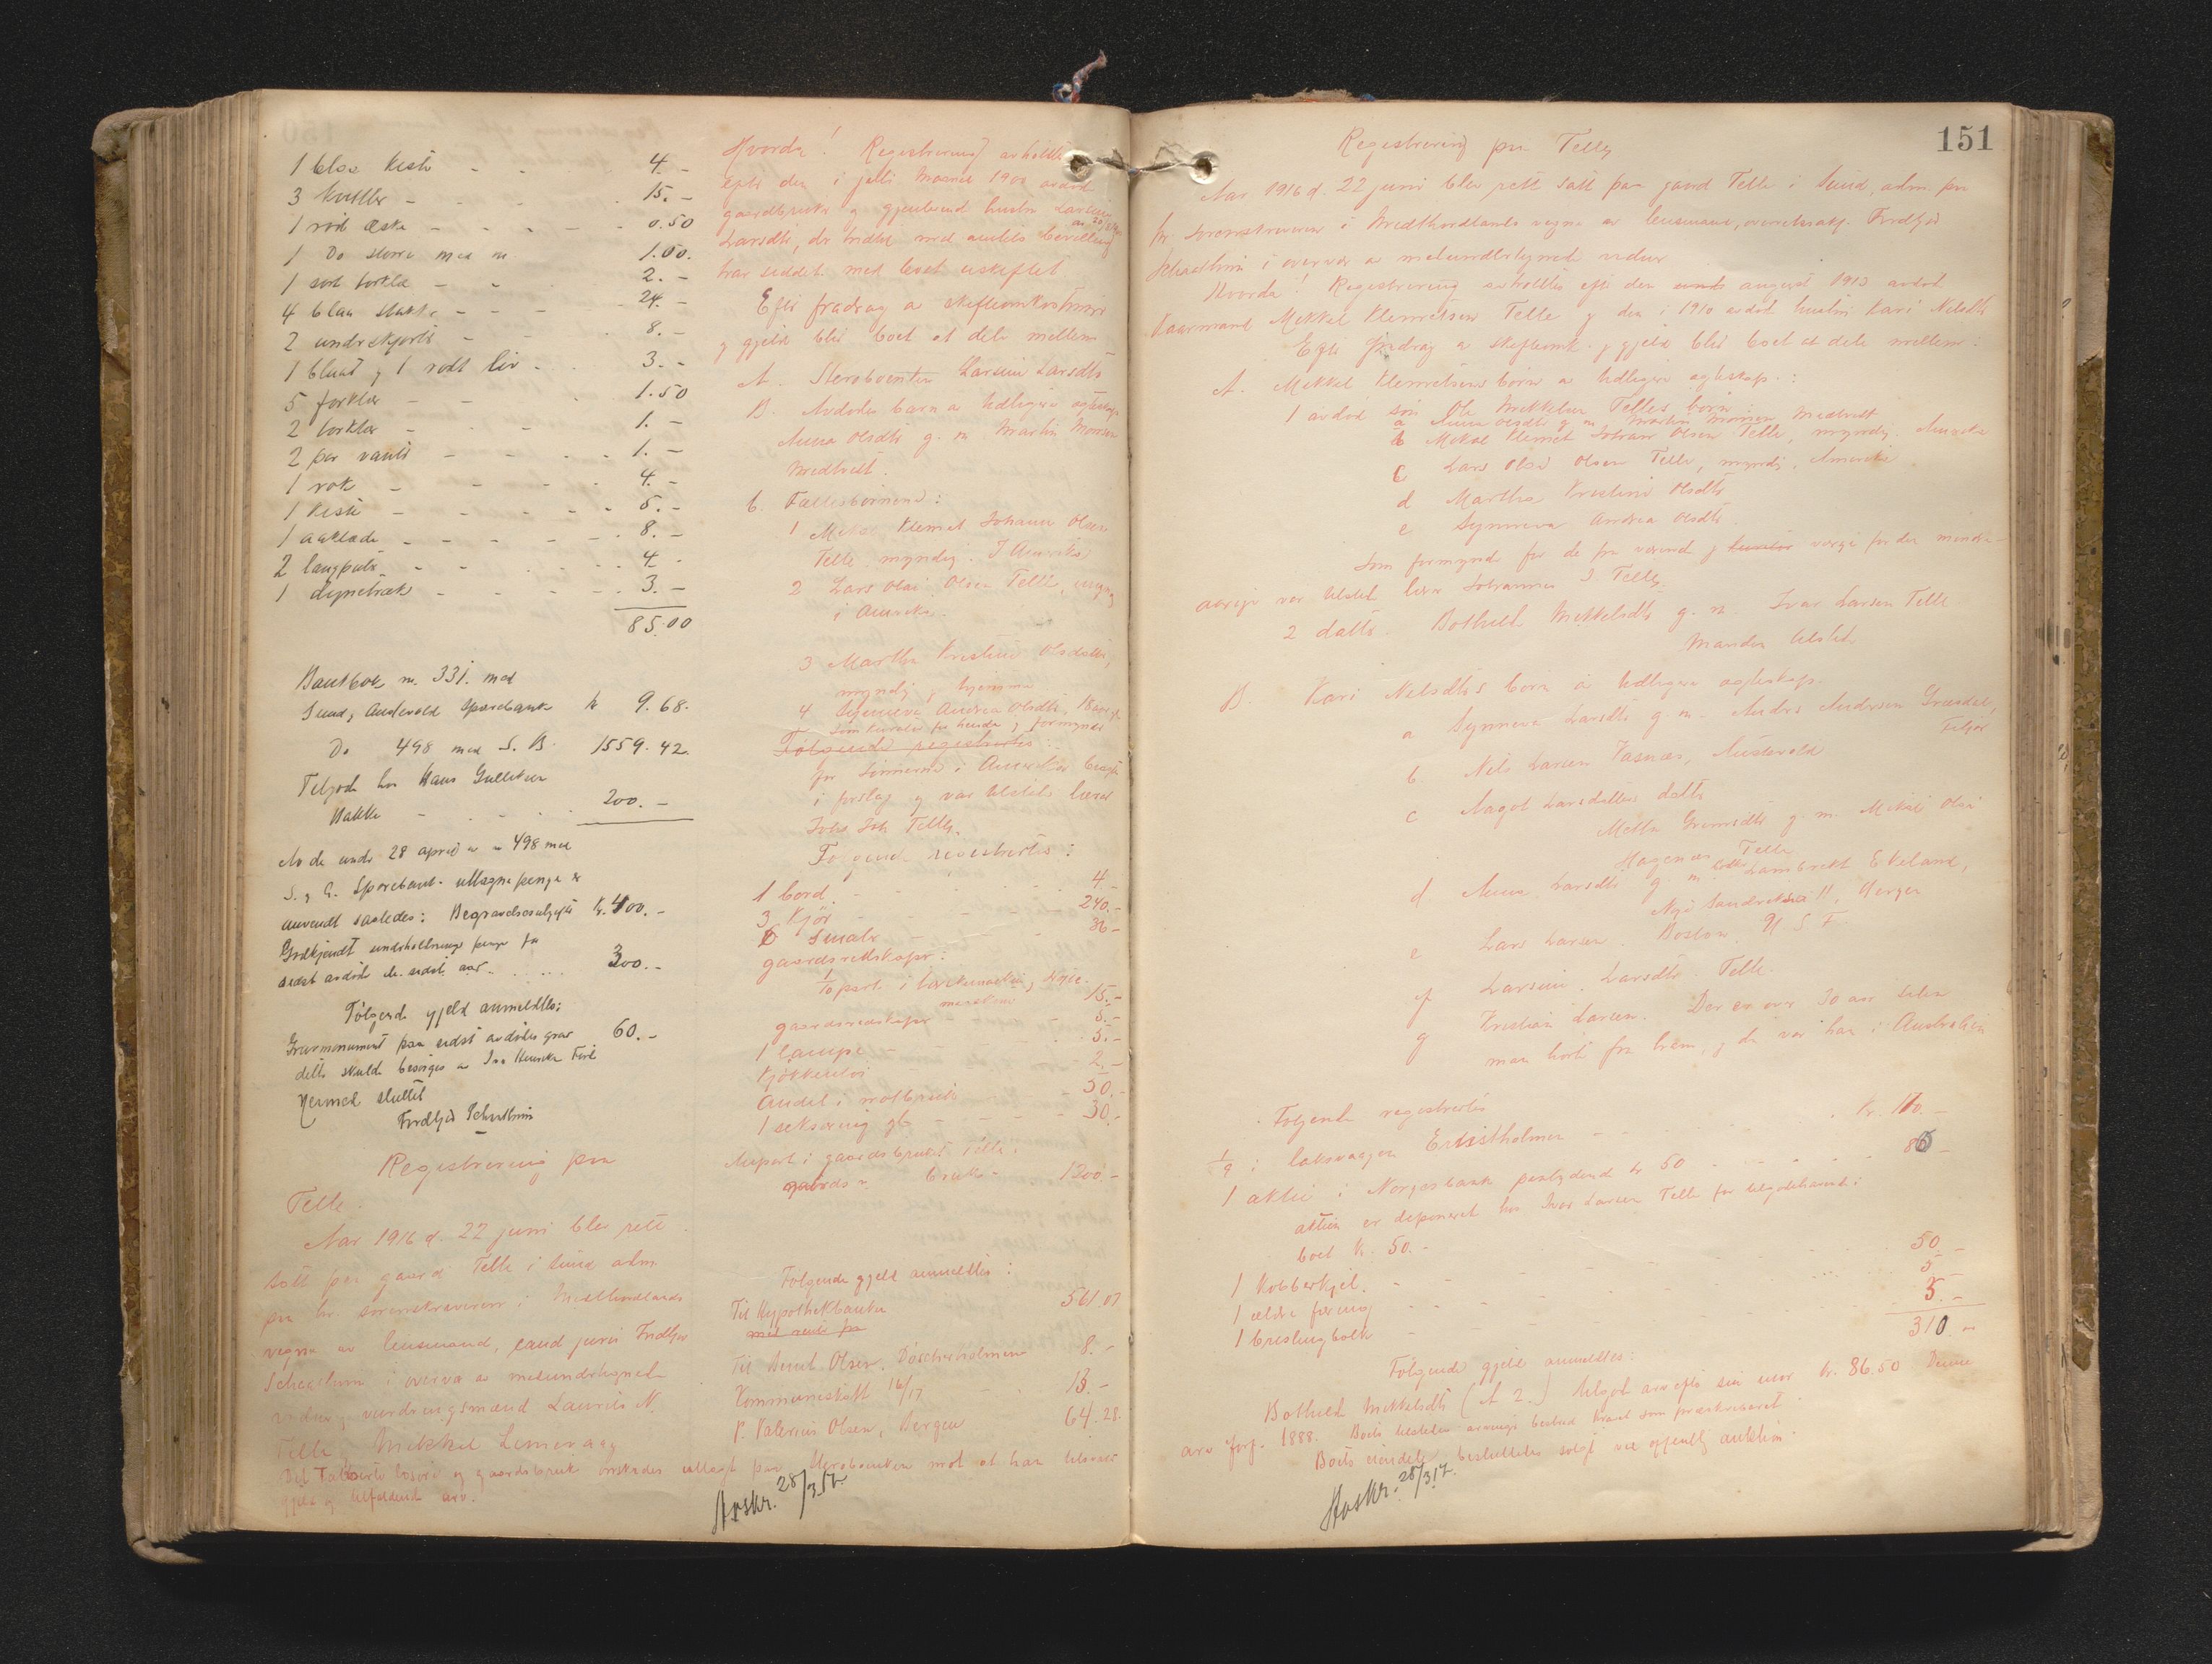 1 blaa kiste - - 4.-
3 kuttler - - 15.-
1 rød æske - - - 0.50
1 Do større med m 1.00.
1 sort torklæ - - 2.-
4 blaa stakke - - - 24.-
2 underskjorte - - 8.-
1 blaat og 1 rødt liv - - 3.-
5 forklær - - 1.50
2 torklær - - 1.-
2 par vanter - - - 1.-
1 rok - - - 4.-
1 kiste - - - 5.-
1 aaklæde - - - - 8.-
2 langputer - - - 4.-
1 dynetræk - - - 3.-
85.00
Bankbok nr. 331. med
Sund og Austevold sparebank kr 9.68.
Do 498 med S. B. 1559.42.
Tilgode hos Hans Gulliksen
Bakke - - - 200.-
Av de under 28 april av nr 498 med
S. & A. Sparebank uttagne penge er
anvendt saaledes: Begravelsesutgifter kr. 400.-
Godkjendt underholdnings penge for
sidst avdøde de sidste aar. 300.-
Følgende gjeld anmeldtes:
Gravmonument paa sidst avdødes grav 60.-
dette skulde besørges av
Hermed sluttet
Fredtjof Schartum
Registrering paa
Telle.
Aar 1916 d. 22 juni blev rett
satt paa gaard Telle i Sund adm.
paa hr. sorenskriveren i Midthordlands
vegne av lensmand, cand juris Fridtjof
Schartum i overvær av medundertegnede
vidner og vurderingsmænd Laurits N.
Telle, Mikkel
Det løsøre og gaardsbruk ønskedes utlagt paa Sterboenken mot at hun tilsvarer
gjæld og utfaldende arv.
Hvorda! Registrering avholdtes
efter den i juli maaned 1900 avdøde
gaardbruker og gjenlevende hustru Larsine
Larsdtr, der hidtil med amtets bevilling
har siddet med boet uskiftet.
Efter fradrag av skifteomkostninger
og gjeld blir boet at dele mellem
A. Sterboenken Larsine Larsdtr
B. Avdødes barn av tidligere egteskap
Anna Olsdtr g. m. Martin Monsen
Midttveit.
b. Fællesbørnene:
1 Mikal Klemet Johann Olsen
Telle, myndig. I Amerika
2 Lars Olai Olsen Telle, myndig
i Amerika.
3 Martha Kristine Olsdatter,
myndig, hjemme
4 Synneva Andrea Olsdtr, 18 aar gl
som kurator for hende og formynder
Følgende registrertes:
for sønnerne i Amerika bragtes
i forslag og var tilstede lærer
Johs Joh Telle.
Følgende registrertes:
1 bord - - - 4.-
3 kjør - - - 240.-
6 smaler - - - 36-
gaardsredskaper:
1/10 part i 15.-
gaardsredskaper - - 5.-
1 lampe - - 5.-
Kjøkkentøi - - 2.-
Andel i notbruk - - 50.-
1 seksæring gl - - - 30.-
Anpart i gaardsbruket Telle,
gaards- bruk- 1300.-
Følgende gjeld anmeldtes:
Til Hypothekbanken 561.07
med rente fra
Til Bernt Olsen, 8.-
Kommuneskatt 16/17 - - 13.-
P. Valerius Olsen, Bergen 64.28.
Avskr. 28/3 17.
151
Registrering paa Telle
Aar 1916 d. 22 juni blev rett satt paa gaard Telle i Sund, adm. paa
hr. sorenskriveren i Midthordlands vegne av lensmand, overretssakf. Fredtjof
Schartum i overvær av medundertegnede vidner
Hvorda! Registrering avholdtes efter den ansk august 1913 avdøde
kaarmand Mikkel Klemetsen Telle og den i 1910 avdøde hustru Kari Nilsdtr
Efter fradrag av skifteomk. og gjeld blir boet at dele mellem:
A. Mikkel Klemetsens børn av tidligere egteskap.:
1 avdød søn Ole Mikkelsen Telles børn
a Anna Olsdtr g. m. Martin Monsen Midttveit
b Mikal Klemet Johann Olsen Telle, myndig. Amerika
c Lars Olai Olsen Telle, myndig. Amerika
d Martha Kristine Olsdtr
e Synneva Andrea Olsdtr
Som formynder for de fraværende og kurator værge for den mindre-
aarige var tilstede lærer Johannes J. Telle.
2 datter. Bothild Mikkelsdtr g. m. Ivar Larsen Telle
Manden tilstede
B. Kari Nilsdtrs børn av tidligere egteskap.
a Synneva Larsdtr g. m. Anders Andersen
b Nils Larsen Vasnæs, Austevold
c Aagot Larsdatters datter
g. m. Mikal Olai
Hagenæs Telle
d Anna Larsdtr g. m. Lambrekt Ekeland,
11, Bergen
e Lars Larsen. Boston. U. S. A.
f Larsine Larsdtr. Telle
g Kristian Larsen. Der er over 30 aar siden
man hørte fra ham, og da var han i Australien
Følgende registrertes
1/9 i laksevaagen - - - kr. 170.-
1 aktie i Norgesbank paalydende kr 50 - - - - 80-
aktien er deponeret hos Ivar Larsen Telle for tilgodehavende i
boet kr. 50.-
1 Kobberkjel. - - - - 50.-
1 ældre færing - - - - 5.-
1 brislingbolk - - - 5.-
310.-
Følgende gjeld anmeldtes:
Bothild Mikkelsdtr (A 2.) tilgode arv efter sin mor kr. 86.50 Denne
arv forf. 1888. Boets tilstedeværende arvinger bestred kravet som præskriberet.
Boets eiendele besluttedes solgt ved offentlig auktion.
Avskr. 28/3 17.